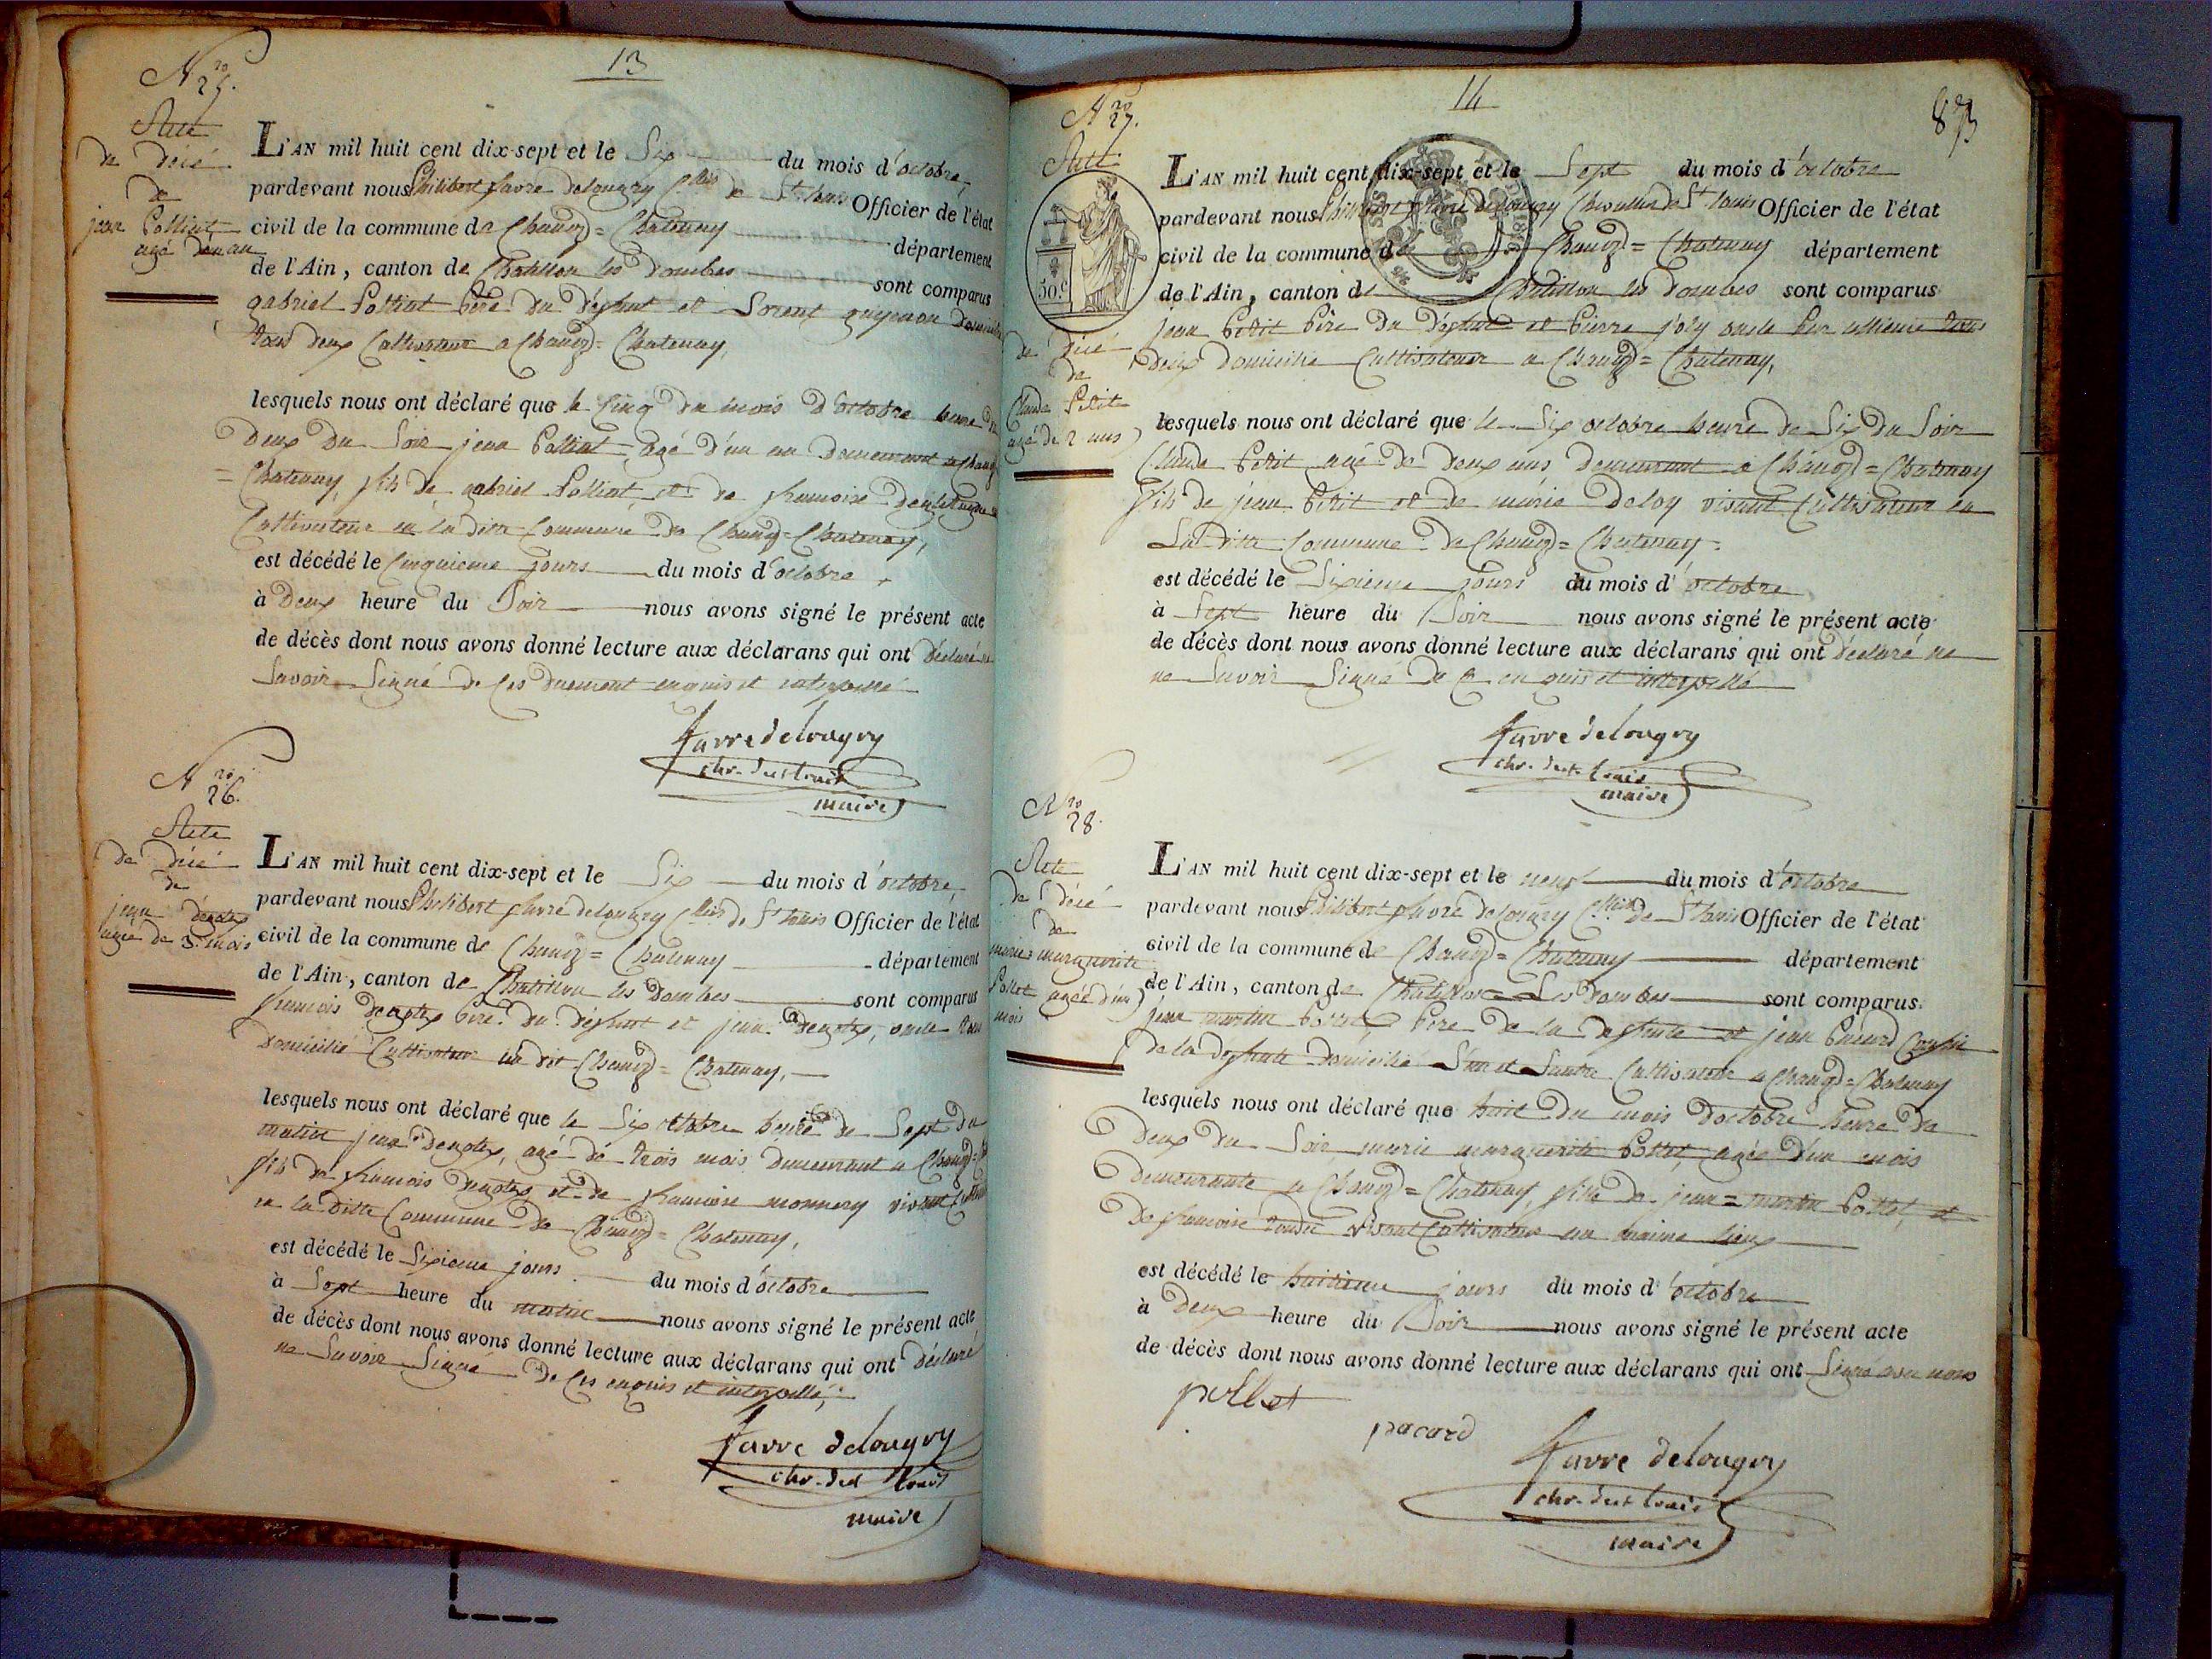 13
Nro
25.
Acte
de décé
de
jean Polliat
agé dun an
L'AN mil huit cent dix-sept et le Six du mois d'octobre,
pardevant nous Philibert favre delongry Chlier de St louis Officier de l'état
civil de la commune de Chaneyz = Chatenay département
de l'Ain, canton de Chatillon les Dombes sont comparus
gabriel Polliat Père du défunt et Lorent guyenon Domicilié
tous deux Cultivateur a Chaneyz = Chatenay,
lesquels nous ont déclaré que le Cinq du mois d'octobre heure de
Deux du Soir jean Polliat agé d'un an Demeurant a Chaneyz
= Chatenay, fils de gabriel Polliat et de francoise
Cultivateur en la ditte Commune de Chaneyz = Chatenay,
est décédé le Cinquieme jours du mois d'octobre
à Deux heure du Soir nous avons signé le présent acte
de décès dont nous avons donné lecture aux déclarans qui ont Déclaré ne
Savoir Signé De Ces Duement enquis et interpellé
favre delongry
chr. de st louis
maire
Nro
26.
Acte
de décé
de
jean denotex
agée de 3 mois
L'AN mil huit cent dix-sept et le Six du mois d'octobre,
pardevant nous Philibert favre delongry Chlier de St louis Officier de l'état
civil de la commune de Chaneyz = Chatenay département
de l'Ain, canton de Chatillon les Dombes sont comparus
francois denotex Père du défunt et jean denotex, oncle tous
Domicilié Cultivateur au dit Chaneyz = Chatenay,
lesquels nous ont déclaré que le Six octobre heure de Sept du
matin jean denotex, agé de trois mois demeurant a Chaneyz =
fils de francois denotex et de francoise monnery vivant
en la ditte Commune de Chaneyz = Chatenay,
est décédé le Sixieme jours du mois d'octobre
à Sept heure du matin nous avons signé le présent acte
de décès dont nous avons donné lecture aux déclarans qui ont déclaré
ne Savoir Signé De Ces enquis et interpellé,
favre delongry
chr. de st louis
maire
14
83
Nro
27.
Acte
50.c
de décé
de
Claude Petit
agé de 2 ans
L'AN mil huit cent dix-sept et le Sept du mois d'octobre
pardevant nous Philibert favre delongry Chevallier de St louis Officier de l'état
civil de la commune de Chaneyz = Chatenay département
de l'Ain, canton de Chatillon les Dombes sont comparus
jean Petit Père du défunt et Pierre joly oncle Par alliance tous
Deux domicilié Cultivateur a Chaneyz = Chatenay,
lesquels nous ont déclaré que le Six octobre heure de Six du Soir
Claude Petit agé de deux ans demeurant a Chaneyz = Chatenay
fils de jean Petit et de marie Deloy vivant Cultivateur en
La ditte Commune de Chaneyz = Chatenay.
est décédé le Sixieme jours du mois d'octobre
à Sept heure du Soir nous avons signé le présent acte
de décès dont nous avons donné lecture aux déclarans qui ont déclaré ne
ne Savoir Signé De Ce enquis et interpellé
favre delongry
chr. de st louis
maire
Nro
28.
Acte
de décé
de
marie marguerite
Pollet agée d'un
mois
L'AN mil huit cent dix-sept et le neuf du mois d'octobre
pardevant nous Philibert favre delongry Chlier de St louis Officier de l'état
civil de la commune de Chaneyz = Chatenay département
de l'Ain, canton de Chatillon = Les Dombes sont comparus
jean martin Pollet, Père de la défunte et jean Pacard Cousin
de la défunte domicilié L'un et Lautre Cultivateur a Chaneyz = Chatenay
lesquels nous ont déclaré que huit du mois doctobre heure de
Deux du Soir marie marguerite Pollet, agée d'un mois
demeurante a Chaneyz = Chatenay, fille de jean = martin Pollet, et
De francoise vivant Cultivateur au maime lieux
est décédé le huitieme jours du mois d'octobre
à Deux heure du Soir nous avons signé le présent acte
de décès dont nous avons donné lecture aux déclarans qui ont Signé avec nous
pollet
pacard
favre delongry
chr. de st louis
maire